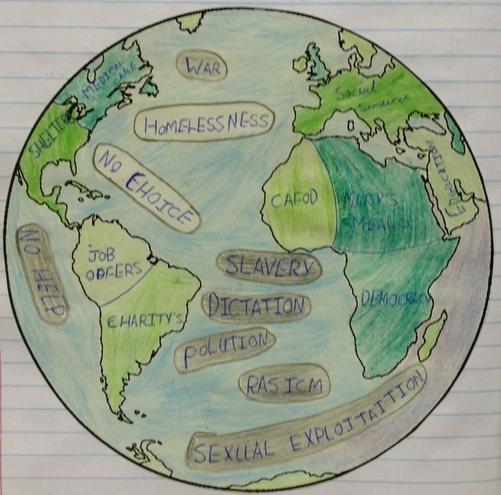 WAR
MEDICAL
CARE
HOMELESSNESS
Social
Services
SHELTER
NO CHOICE
EDUCATION
CAFOD
MARY'S
MEALS
NO HELP
JOB
OFFERS
SLAVERY
DICTATION
DEMOCRACY
CHARITY'S
POLUTION
RASICM
SEXUAL EXPLOITAITION